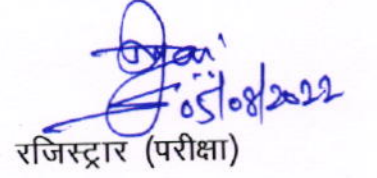 05/08/2022
रजिस्ट्रार (परीक्षा)